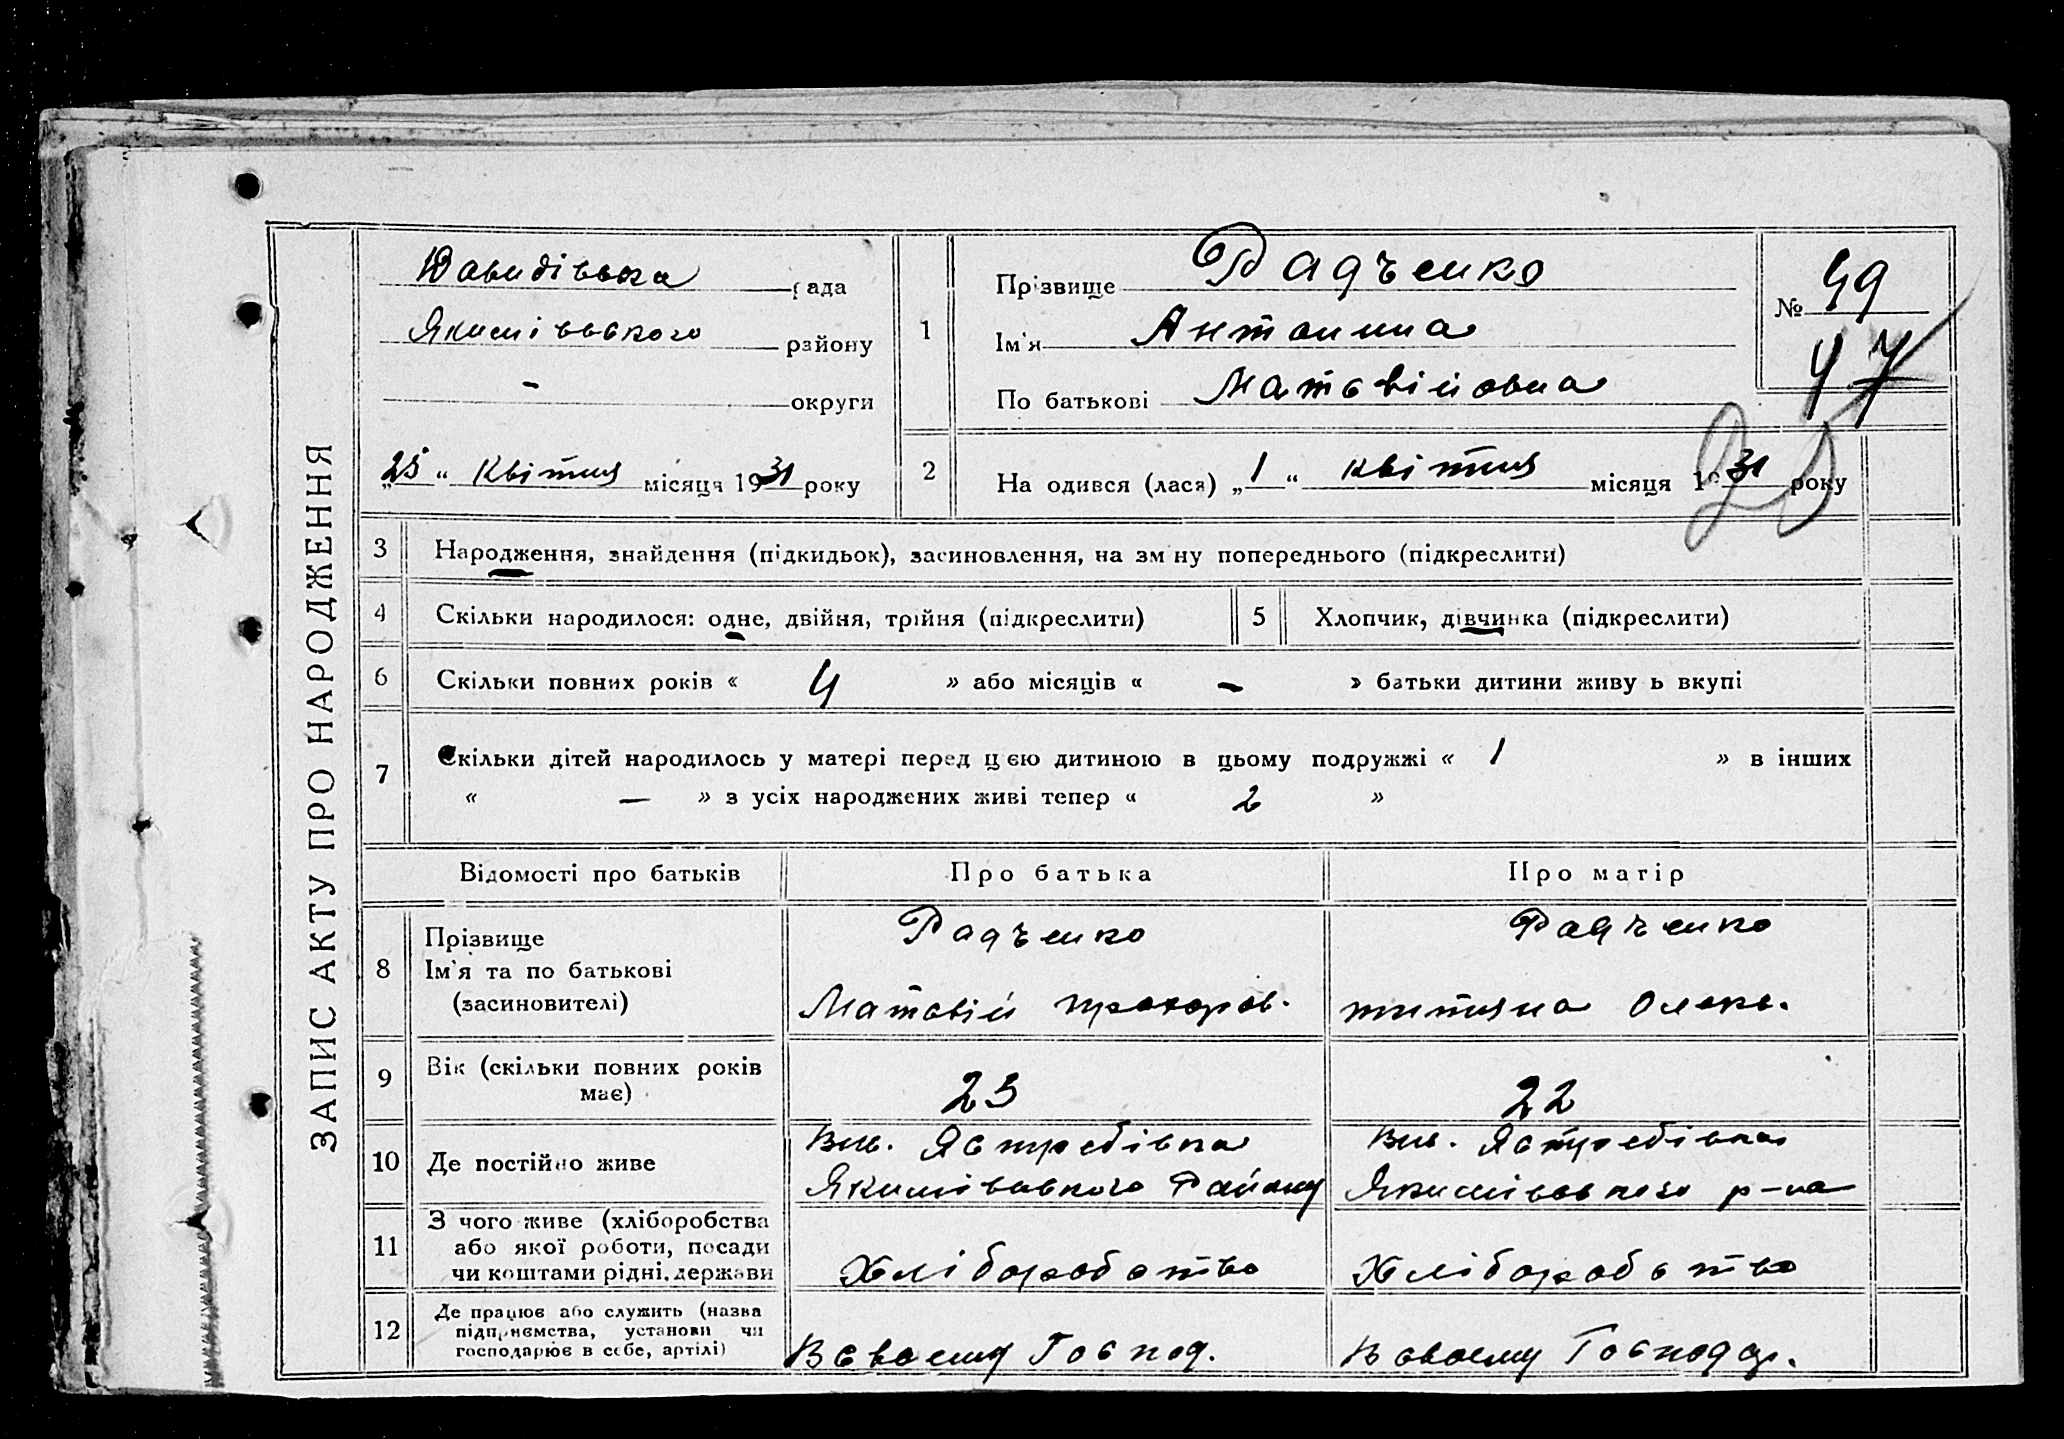 ЗАПИС АКТУ ПРО НАРОДЖЕННЯ
Давидівська рада
Якимівського району
- округи
„25“ Квітня місяця 1931 року
1
Прізвище Радченко
Ім'я Антонина
По батькові Матвійовна
№ 49
47
20
2
На одився (лася) „1“ квітня місяця 1931 року
3 Народження, знайдення (підкидьок), засиновлення, на зм ну попереднього (підкреслити)
4 Скільки народилося: одне, двійня, трійня (підкреслити)
5 Хлопчик, дівчинка (підкреслити)
6 Скільки повних років « 4 » або місяців « - » батьки дитини живу ь вкупі
7 Скільки дітей народилось у матері перед цєю дитиною в цьому подружжі « 1 » в інших
« — » з усіх народжених живі тепер « 2 »
Відомості про батьків
Про батька
Про матір
8 Прізвище
Ім'я та по батькові
(засиновителі)
Радченко
Матвій Прохоров.
Радченко
Титяна Олекс.
9 Вік (скільки повних років
має)
23
22
10 Де постійно живе
Вис. Ястребівка
Якимівського Району
Вис. Ястребівка
Якимівського р-на
11 З чого живе (хліборобства
або якої роботи, посади
чи коштами рідні, держави
Хліборобство
Хліборобство
12 Де працює або служить (назва
підприємства, установи чи
господарює в себе, артілі)
В своєму Господ.
В своєму Господар.